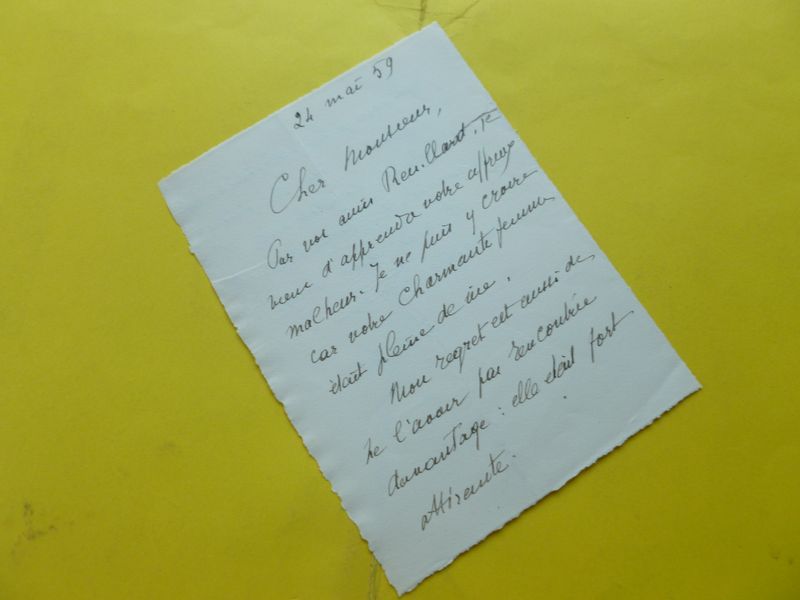 24 mai 59
Cher Monsieur,
Par vos amis Reuillard, je
viens d'apprendre votre affreux
malheur. Je ne puis y croire
car votre charmante femme
était pleine de vie.
Mon regret est aussi de
ne l'avoir pas rencontrée
davantage : elle était fort
attirante.